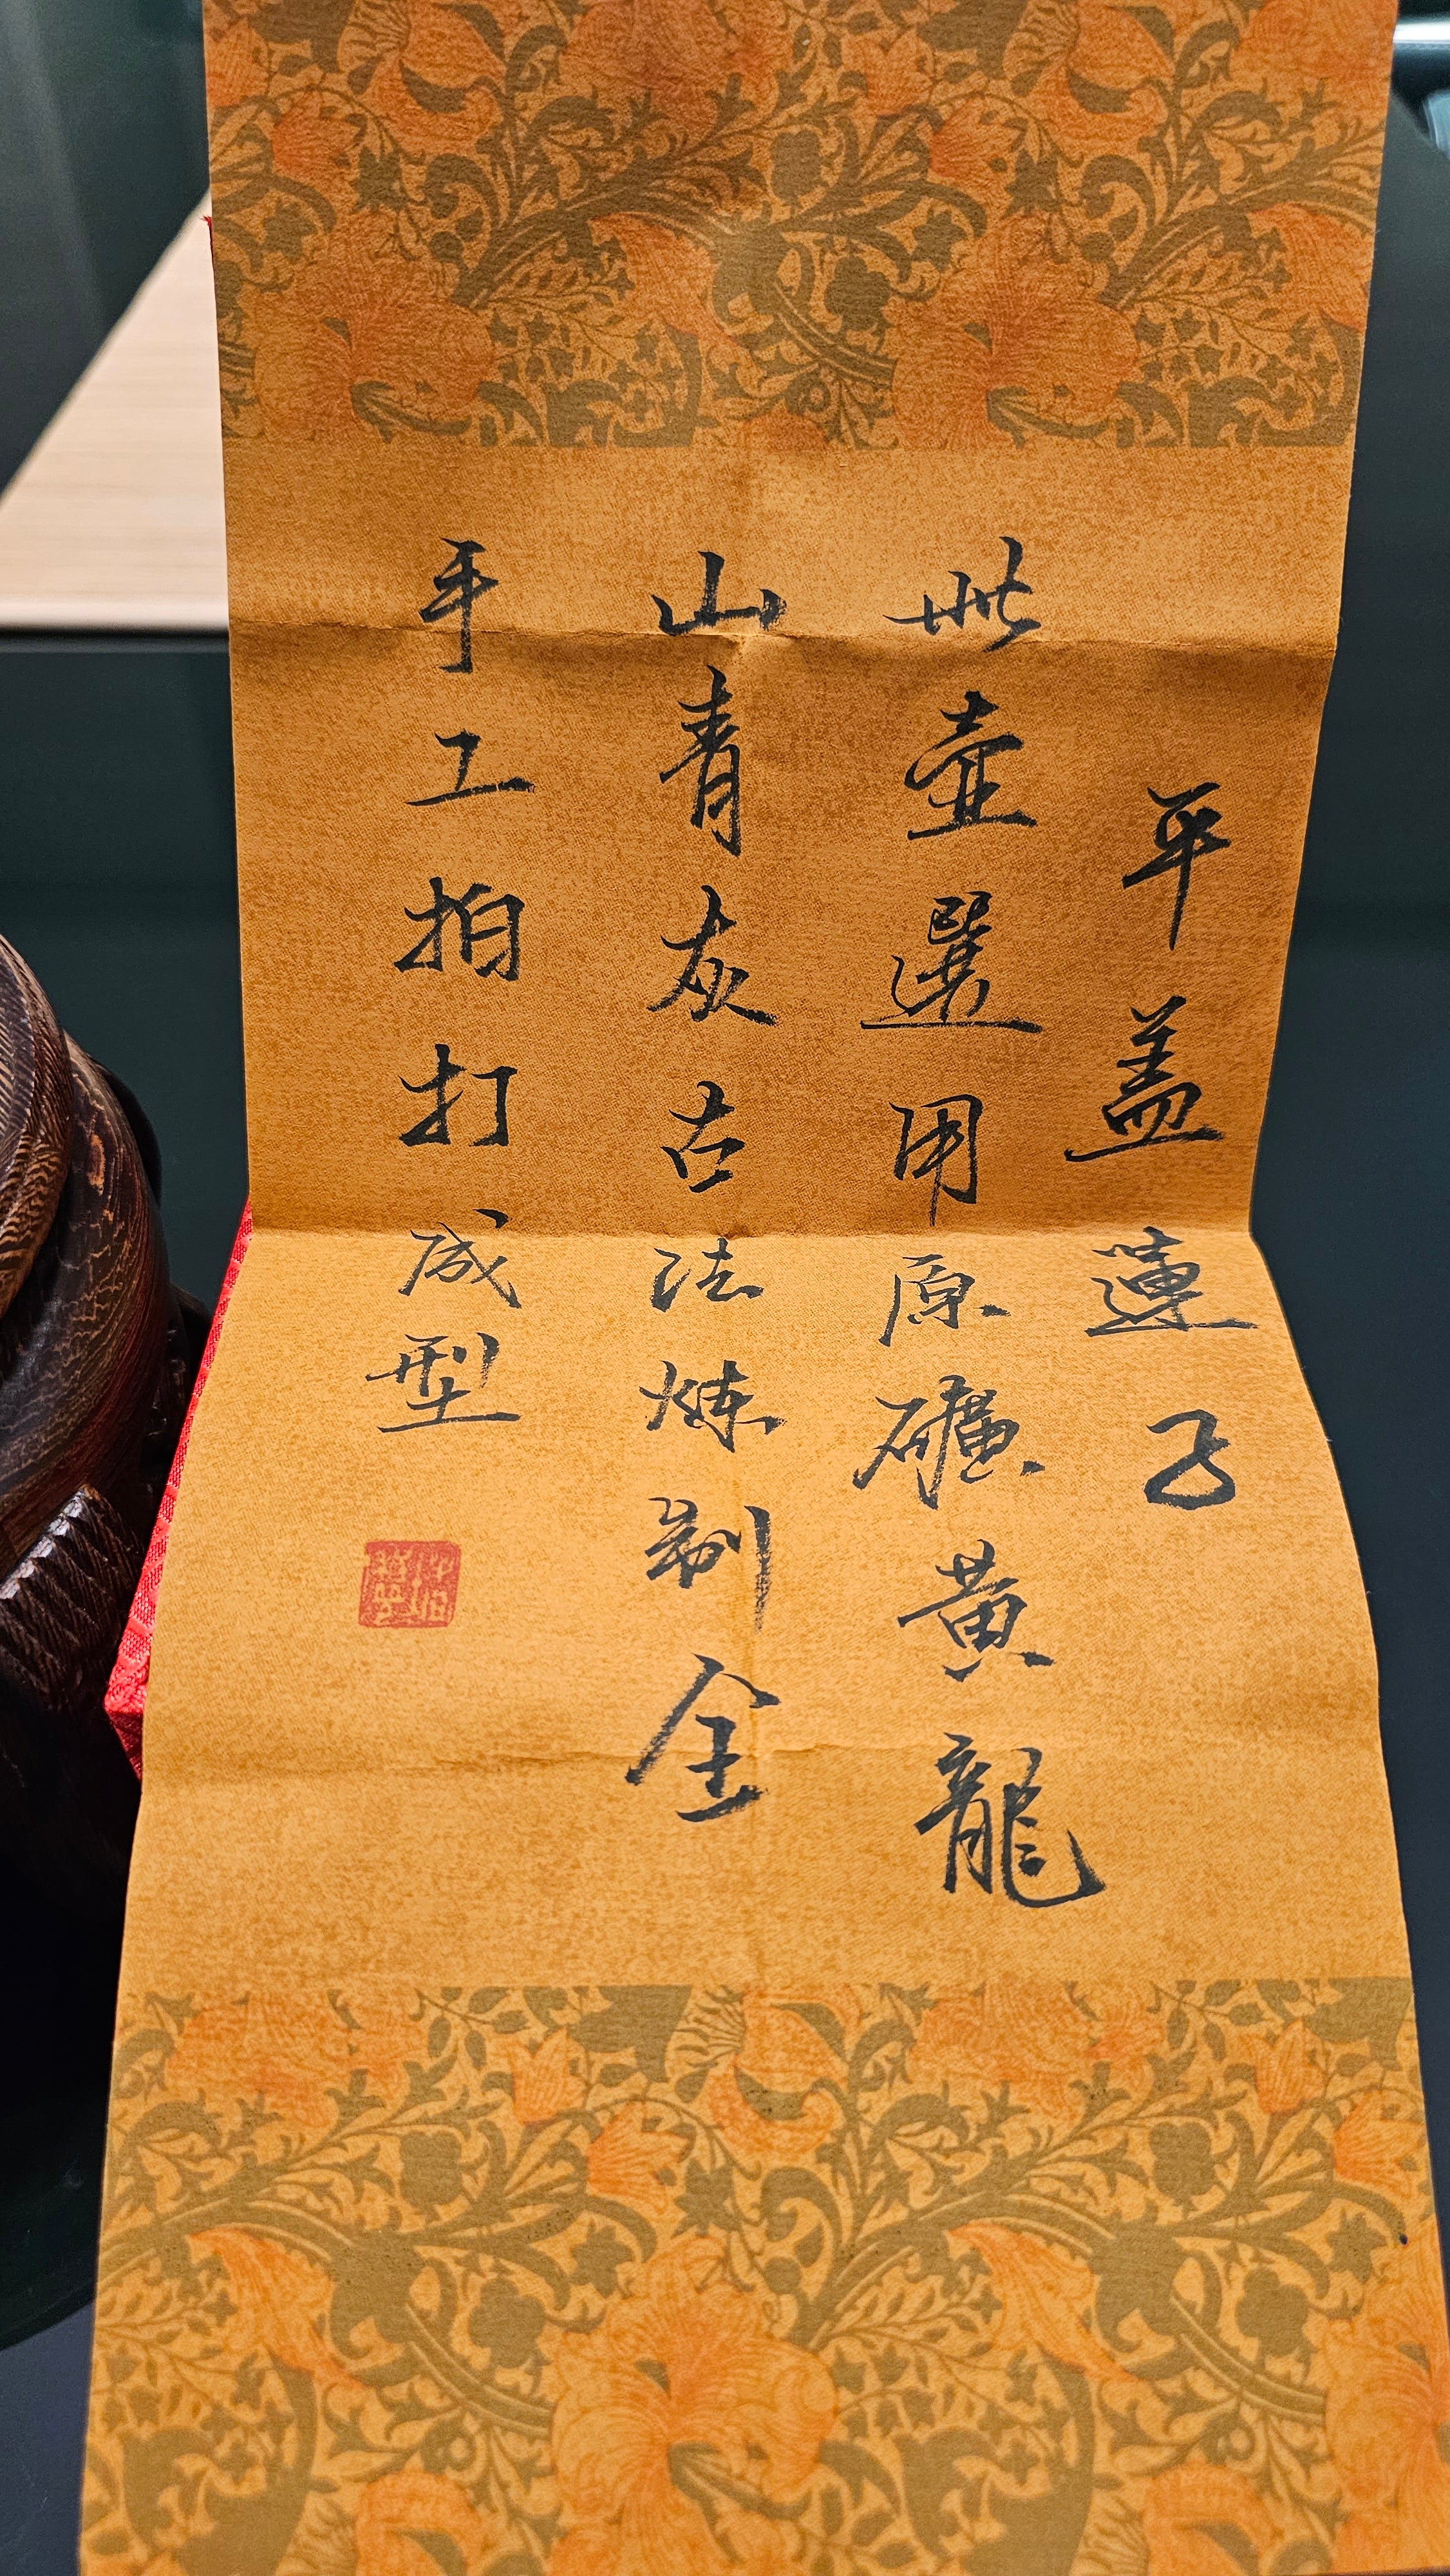 平盖蓮子
此壺選用原礦黃龍
山青灰古法炼制全
手工拍打成型